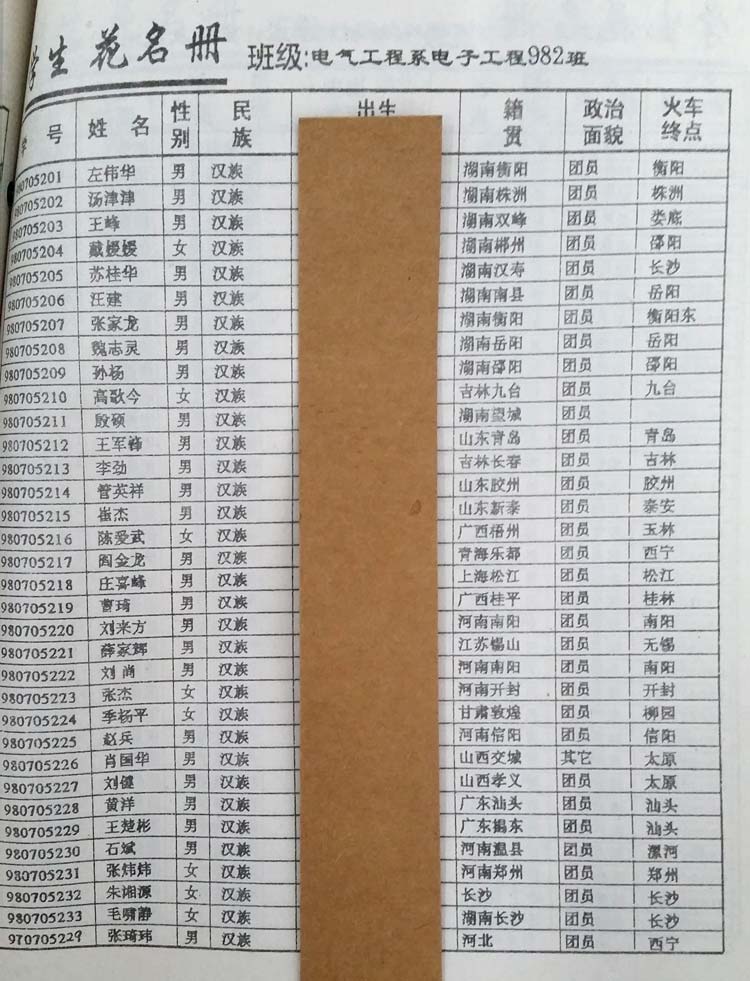 学生花名册 班级:电气工程系电子工程982班
学号 姓名 性别 民族 出生 籍贯 政治面貌 火车终点
980705201 左伟华 男 汉族 湖南衡阳 团员 衡阳
980705202 汤津津 男 汉族 湖南株洲 团员 株洲
980705203 王峰 男 汉族 湖南双峰 团员 娄底
980705204 戴媛媛 女 汉族 湖南郴州 团员 邵阳
980705205 苏桂华 男 汉族 湖南汉寿 团员 长沙
980705206 汪建 男 汉族 湖南南县 团员 岳阳
980705207 张家龙 男 汉族 湖南衡阳 团员 衡阳东
980705208 魏志灵 男 汉族 湖南岳阳 团员 岳阳
980705209 孙杨 男 汉族 湖南邵阳 团员 邵阳
980705210 高歌今 女 汉族 吉林九台 团员 九台
980705211 殷硕 男 汉族 湖南望城 团员
980705212 王军锋 男 汉族 山东青岛 团员 青岛
980705213 李劲 男 汉族 吉林长春 团员 吉林
980705214 管英祥 男 汉族 山东胶州 团员 胶州
980705215 崔杰 男 汉族 山东新泰 团员 泰安
980705216 陈爱武 女 汉族 广西梧州 团员 玉林
980705217 阎金龙 男 汉族 青海乐都 团员 西宁
980705218 庄喜峰 男 汉族 上海松江 团员 松江
980705219 曹琦 男 汉族 广西桂平 团员 桂林
980705220 刘来方 男 汉族 河南南阳 团员 南阳
980705221 薛家辉 男 汉族 江苏锡山 团员 无锡
980705222 刘尚 男 汉族 河南南阳 团员 南阳
980705223 张杰 女 汉族 河南开封 团员 开封
980705224 季杨平 女 汉族 甘肃敦煌 团员 柳园
980705225 赵兵 男 汉族 河南信阳 团员 信阳
980705226 肖国华 男 汉族 山西交城 其它 太原
980705227 刘健 男 汉族 山西孝义 团员 太原
980705228 黄洋 男 汉族 广东汕头 团员 汕头
980705229 王楚彬 男 汉族 广东揭东 团员 汕头
980705230 石斌 男 汉族 河南温县 团员 漯河
980705231 张炜炜 女 汉族 河南郑州 团员 郑州
980705232 朱湘源 女 汉族 长沙 团员 长沙
980705233 毛啸静 女 汉族 湖南长沙 团员 长沙
970705229 张琦玮 男 汉族 河北 团员 西宁